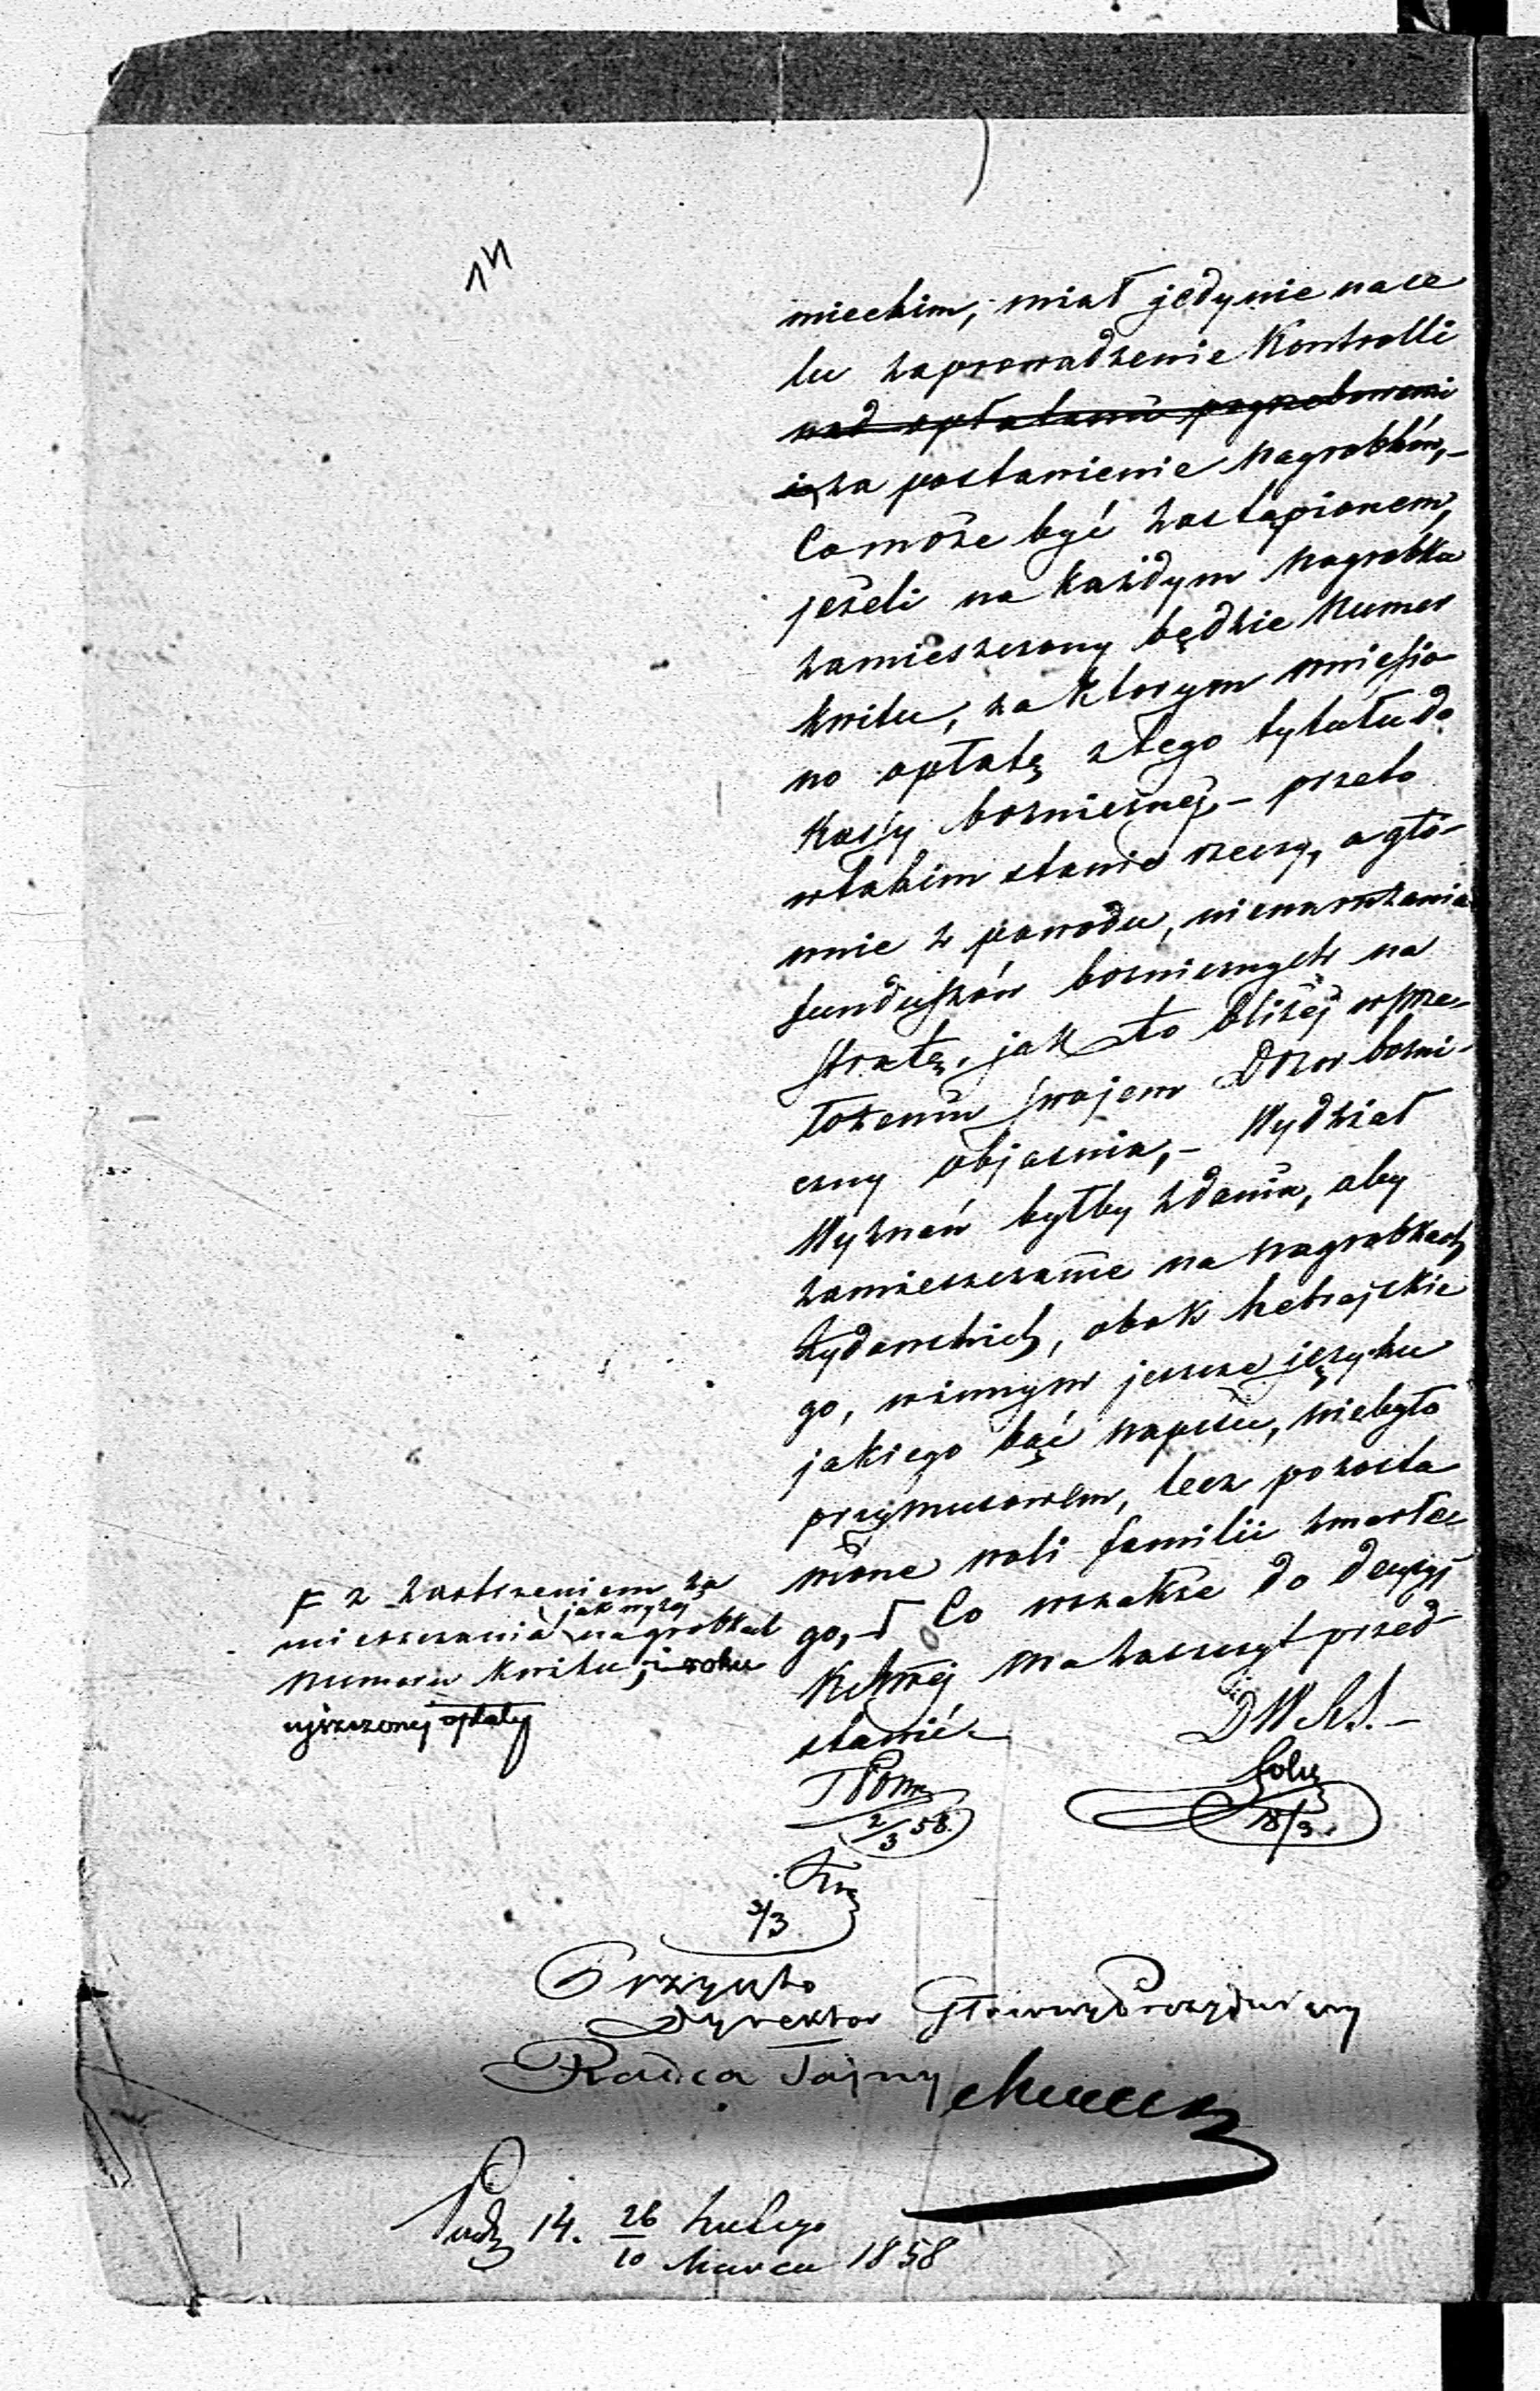 14
mieckim, miał jedynie na ce
lu zaprowadzenie Kontrolli
nad opłatami pogrzebowemi
i za postawienie Nagrobków,-
Co może być zastąpionem,
jeżeli na każdym Nagrobku
zamieszczony będzie Numer
kwitu, za którym wniesio
no opłatę z tego tytułu do
Kassy bożniczej,- przeto
w takim stanie rzeczy, a głó-
wnie z powodu, nienarażania
funduszów bożnicznych na
stratę, jak to bliżej w prze-
łożeniu swojem Dozór bożni-
czny objaśnia,- Wydział
Wyznań byłby zdania, aby
zamieszczanie na nagrobkach
żydowskich, obok hebrajskie
go, w innym jeszcze języku
jakiego bąć napisu, niebyło
przymusowem, lecz pozosta
wione woli familii zmarłe
go, F Co wszakże do decyzyi
ma zaszczyt przed
stawić.
F z zastrzeżeniem za
mieszczania jak wyżej na grobkach
numeru kwitu, i roku
ujszczonej opłaty
2/3 58.
18/3.
2/3
Przyjęto
Dyrektor Główny Prezydujący
Radca Tajny
14. 26 Lutego
10 Marca 1858